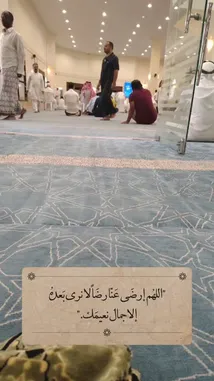 "اللهم إرضَى عَنّا رضَاً لا نرى بَعدهُ
إلا جمال نعيمَك."